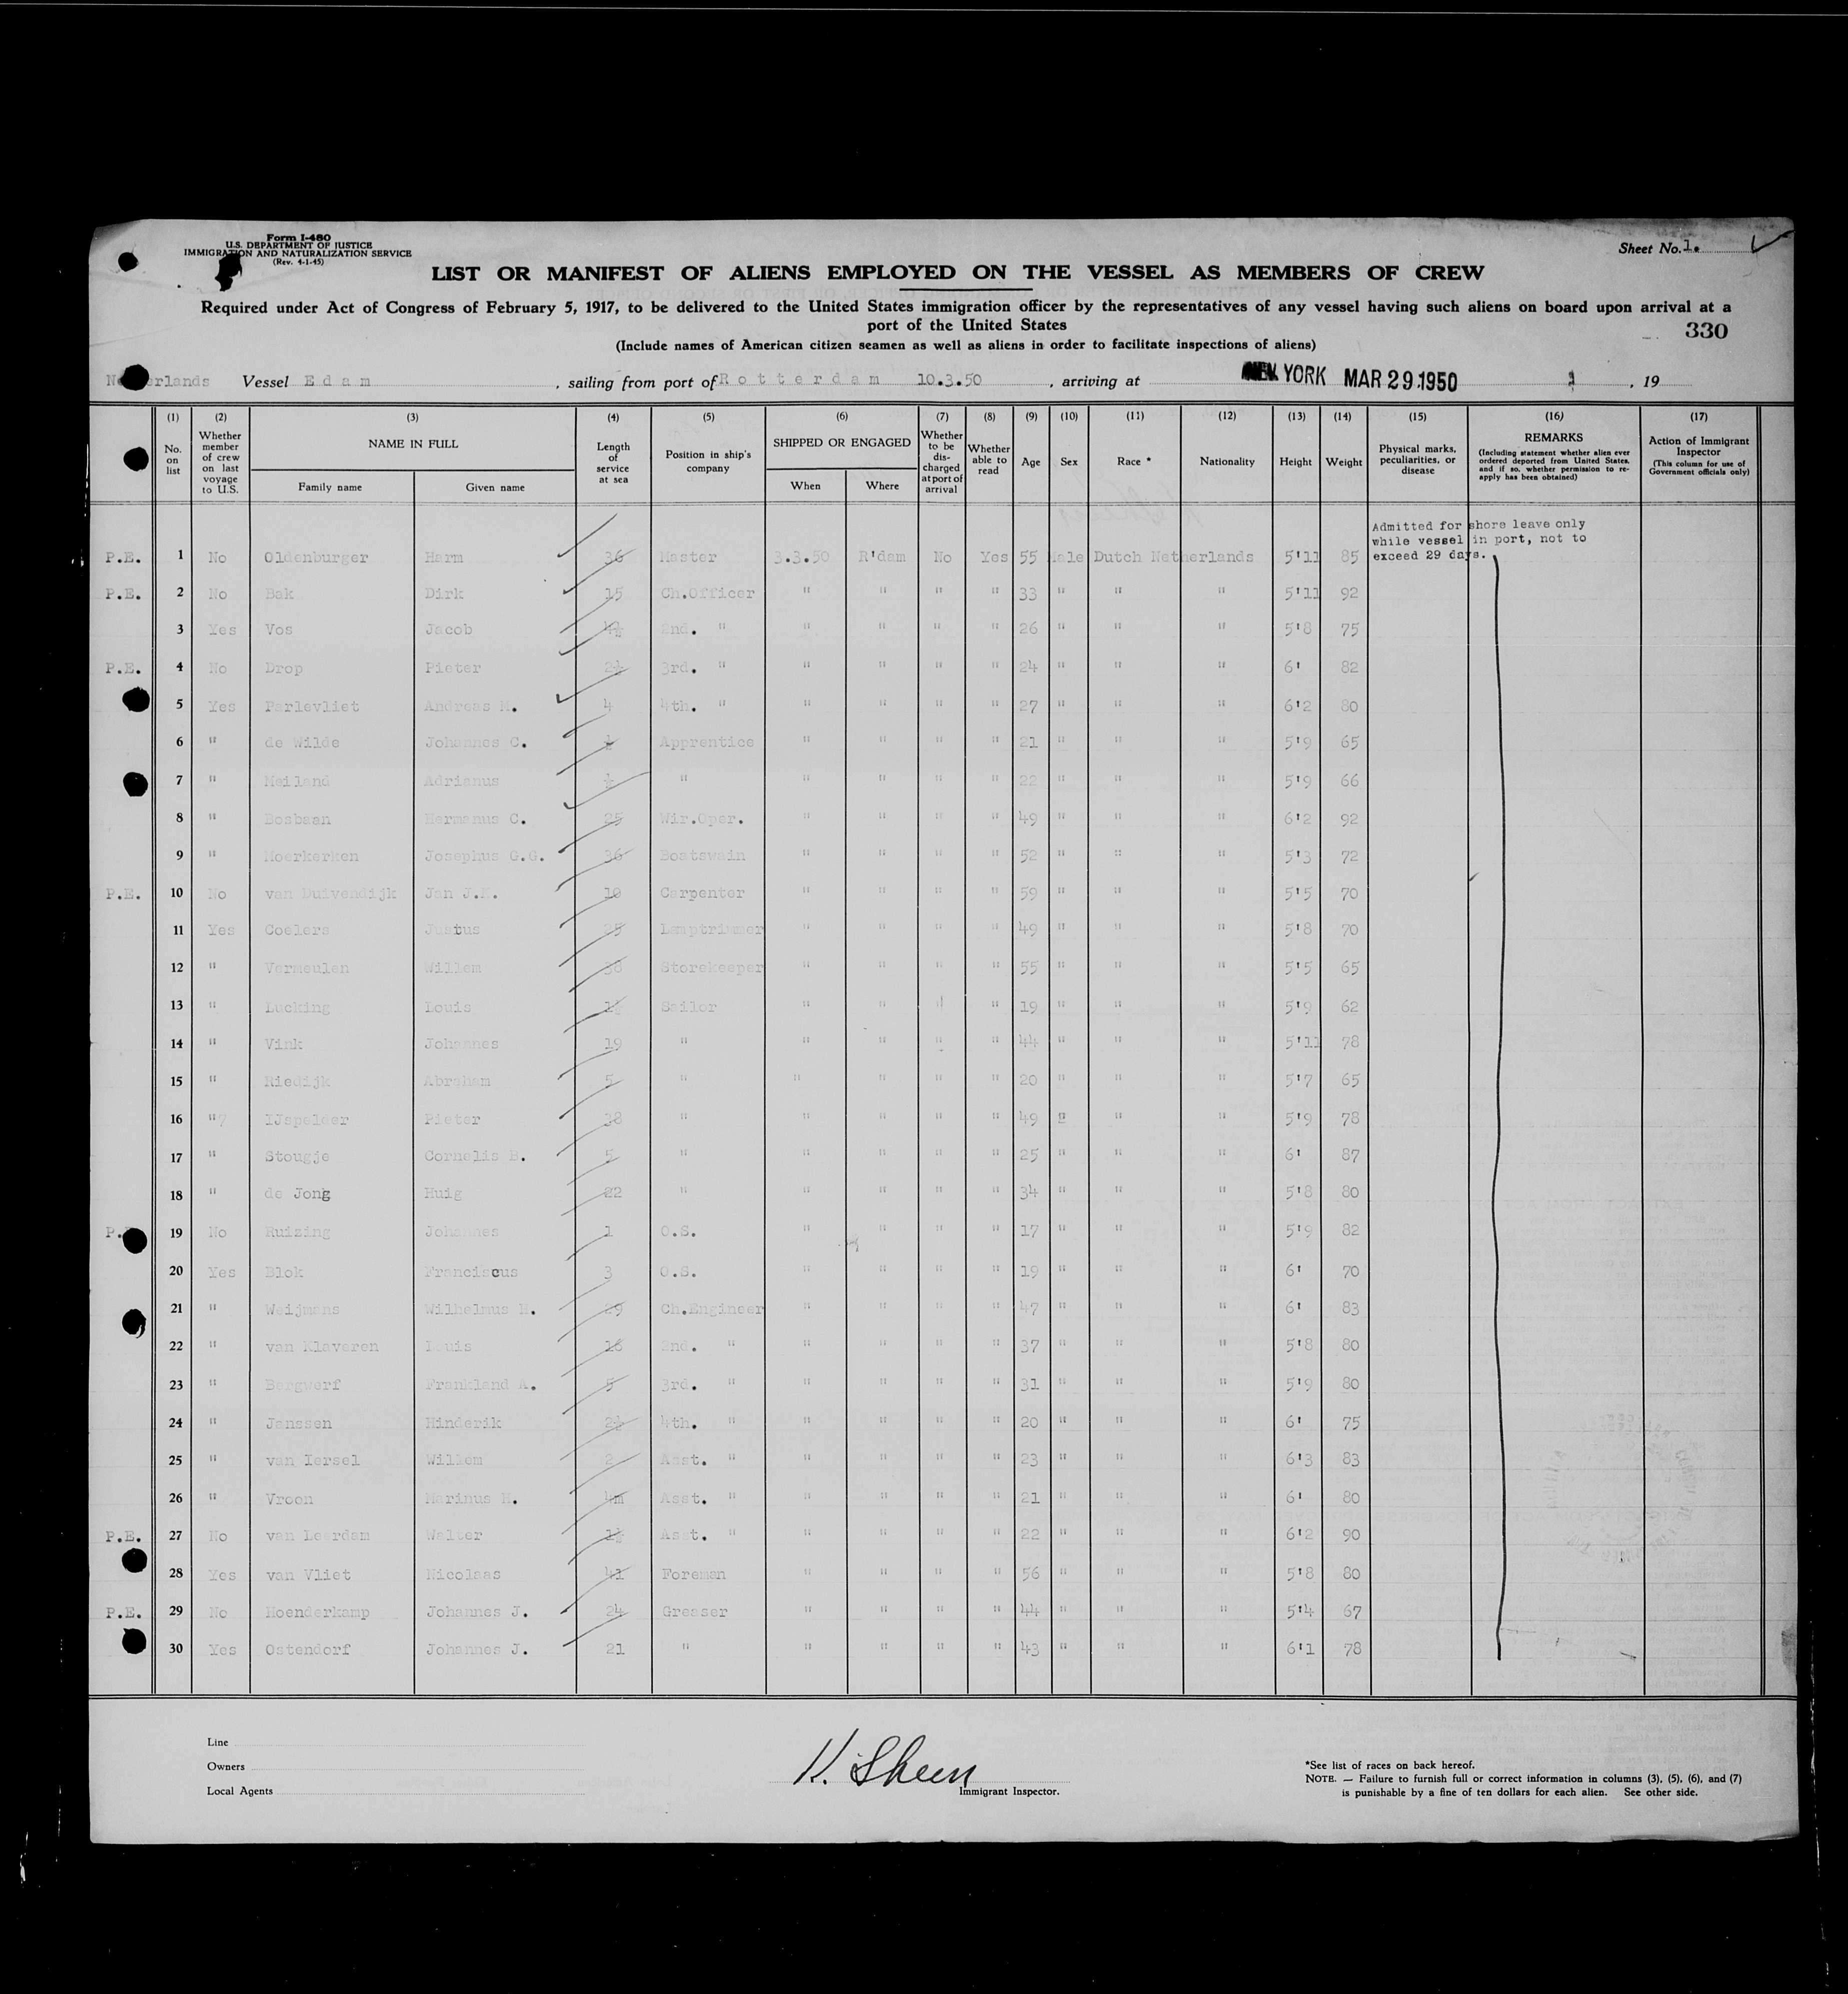 Form I-480
U.S. DEPARTMENT OF JUSTICE
IMMIGRATION AND NATURALIZATION SERVICE
(Rev. 4-1-45)
Sheet No. 1.
LIST OR MANIFEST OF ALIENS EMPLOYED ON THE VESSEL AS MEMBERS OF CREW
Required under Act of Congress of February 5, 1917, to be delivered to the United States immigration officer by the representatives of any vessel having such aliens on board upon arrival at a
port of the United States
330
(Include names of American citizen seamen as well as aliens in order to facilitate inspections of aliens)
Vessel Edam , sailing from port of Rotterdam 10.3.50 , arriving at NEW YORK MAR 29 1950 , 19
(1) (2) (3) (4) (5) (6) (7) (8) (9) (10) (11) (12) (13) (14) (15) (16) (17)
No. on list | Whether member of crew on last voyage to U.S. | NAME IN FULL Family name Given name | Length of service at sea | Position in ship's company | SHIPPED OR ENGAGED When Where | Whether to be discharged at port of arrival | Whether able to read | Age | Sex | Race * | Nationality | Height | Weight | Physical marks, peculiarities, or disease | REMARKS (Including statement whether alien ever ordered deported from United States, and if so, whether permission to reapply has been obtained) | Action of Immigrant Inspector (This column for use of Government officials only)
Admitted for shore leave only
while vessel in port, not to
exceed 29 days.
P.E. 1 No Oldenburger Harm 36 Master 3.3.50 R'dam No Yes 55 Male Dutch Netherlands 5'11 85
P.E. 2 No Bak Dirk 15 Ch.Officer " " " " 33 " " " 5'11 92
3 Yes Vos Jacob 4½ 2nd. " " " " " 26 " " " 5'8 75
P.E. 4 No Drop Pieter 2½ 3rd. " " " " " 24 " " " 6' 82
5 Yes Parlevliet Andreas M. 4 4th. " " " " " 27 " " " 6'2 80
6 " de Wilde Johannes C. ½ Apprentice " " " " 21 " " " 5'9 65
7 " Meiland Adrianus ½ " " " " " 22 " " " 5'9 66
8 " Bosbaan Hermanus C. 25 Wir.Oper. " " " " 49 " " " 6'2 92
9 " Moerkerken Josephus G.G. 36 Boatswain " " " " 52 " " " 5'3 72
P.E. 10 No van Duivendijk Jan J.K. 10 Carpenter " " " " 59 " " " 5'5 70
11 Yes Coelers Justus 25 Lamptrimmer " " " " 49 " " " 5'8 70
12 " Vermeulen Willem 38 Storekeeper " " " " 55 " " " 5'5 65
13 " Lucking Louis 1½ Sailor " " " " 19 " " " 5'9 62
14 " Vink Johannes 19 " " " " " 44 " " " 5'11 78
15 " Riedijk Abraham 5 " " " " " 20 " " " 5'7 65
16 " IJspelder Pieter 38 " " " " " 49 " " " 5'9 78
17 " Stougje Cornelis B. 5 " " " " " 25 " " " 6' 87
18 " de Jong Huig 22 " " " " " 34 " " " 5'8 80
19 No Ruizing Johannes 1 O.S. " " " " 17 " " " 5'9 82
20 Yes Blok Franciscus 3 O.S. " " " " 19 " " " 6' 70
21 " Weijmans Wilhelmus H. 29 Ch.Engineer " " " " 47 " " " 6' 83
22 " van Klaveren Louis 16 2nd. " " " " " 37 " " " 5'8 80
23 " Bergwerf Frankland A. 5 3rd. " " " " " 31 " " " 5'9 80
24 " Janssen Hinderik 2½ 4th. " " " " " 20 " " " 6' 75
25 " van Iersel Willem 2 Asst. " " " " " 23 " " " 6'3 83
26 " Vroon Marinus 4m Asst. " " " " " 21 " " " 6' 80
P.E. 27 No van Leerdam Walter 1½ Asst. " " " " " 22 " " " 6'2 90
28 Yes van Vliet Nicolaas 41 Foreman " " " " 56 " " " 5'8 80
P.E. 29 No Hoenderkamp Johannes J. 24 Greaser " " " " 44 " " " 5'4 67
30 Yes Ostendorf Johannes J. 21 " " " " " 43 " " " 6'1 78
Line
Owners
Local Agents
K. Sheen
Immigrant Inspector.
*See list of races on back hereof.
NOTE. — Failure to furnish full or correct information in columns (3), (5), (6), and (7)
is punishable by a fine of ten dollars for each alien. See other side.